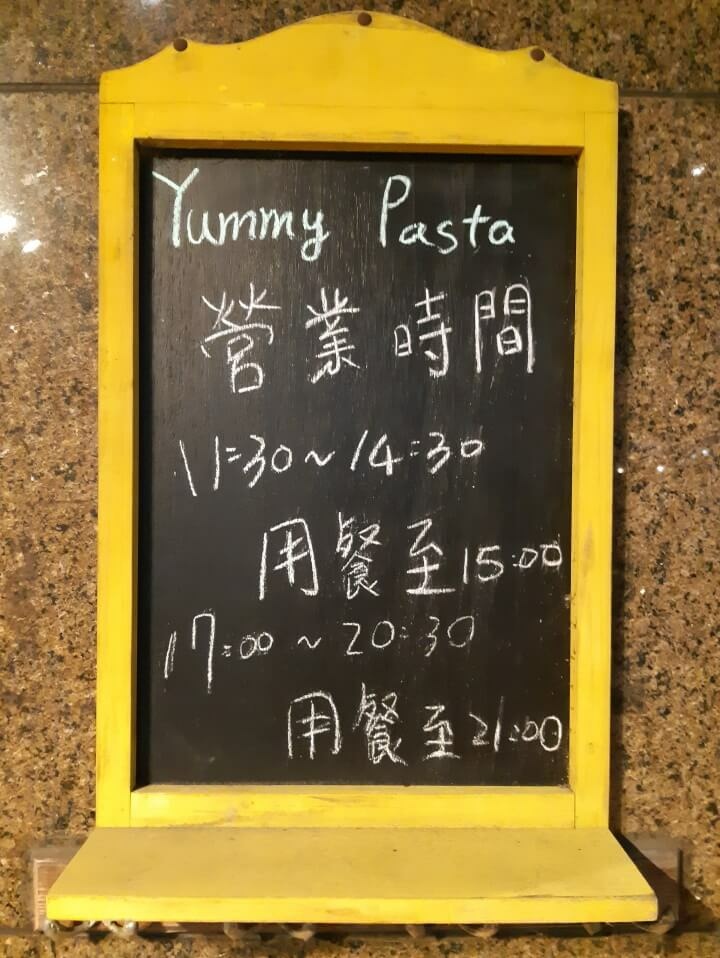 Yummy Pasta
營業時間
11:30~14:30
用餐至15:00
17:00~20:30
用餐至21:00